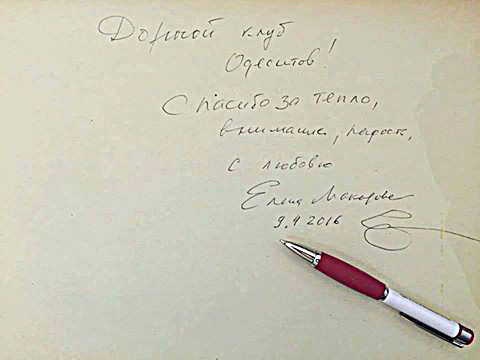 Дорогой клуб
Одесситов!
Спасибо за тепло,
внимание, радость,
с любовью
Елена Макарова
9.4.2016